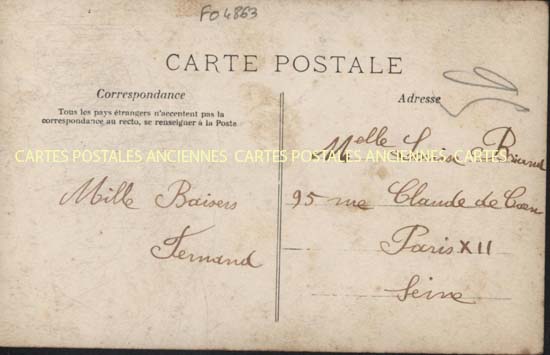 FO 4863
CARTE POSTALE
Correspondance
Tous les pays étrangers n'acceptent pas la
correspondance au recto, se renseigner à la Poste
Adresse
CARTES POSTALES ANCIENNES CARTES POSTALES ANCIENNES CARTES POSTALES ANCIENNES
Mille Baisers
Fernand
Melle Louise Briand
95 rue Claude de Caen
Paris XII
Seine